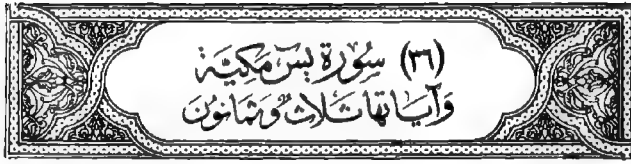 (٣٦) سُورَة يسٓ مَكيَّة
وَآيَاتهَا ثَلَاثٌ وَثَمَانُونَ